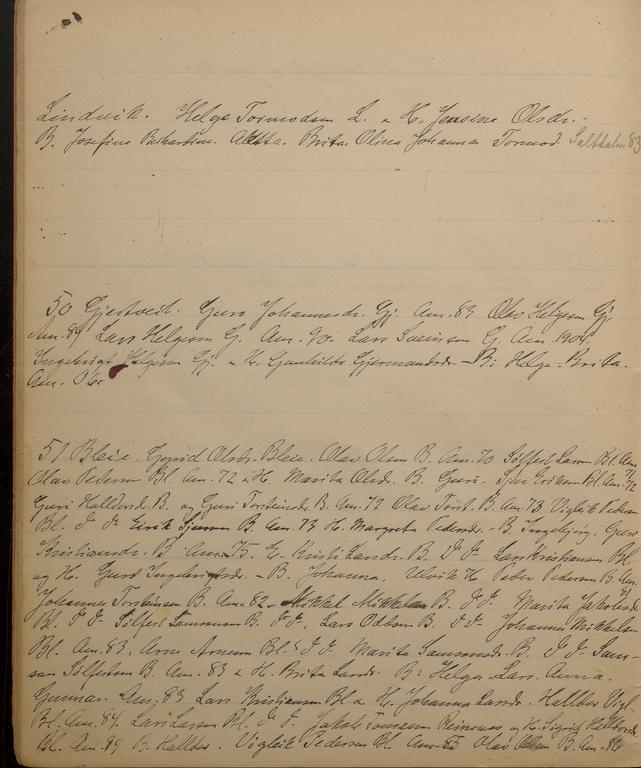 Lindvik. Helge Tormodsen L. & H. Jensine Olsdr. -
B. Josefine Berhartine. Aletta. Brita. Olina Johanna Tormod. Saltdalen 83
50 Gjertveit. Guro Johannesdr. Gj. Am. 83 Olav Helgesen Gj.
Am. 84 Lars Helgesen G. Am. 90. Lars Sveinsen G. Am. 1904.
Ingebrigt Helgesen Gj. & H. Gunhilda Gjermundsdr. - B. Helga. Brita.
Am. 06
51 Bleie. Sigrid Olsdr. Bleie. Olav Olsen B. Am. 70 Sølfest Larsen Bl. Am.
Olav Pedersen Bl. Am. 72 & H. Marita Olsdr. B. Guri. Eriksen Bl. Am. 72
Guri Halldorsdr. B. og Guri Torsteinsdr. B. Am. 72 Olav Torst. B. Am. 73 Vigleik Pedersen
Bl. D. D. Eirik B. Am. 73 H. Margreta Pedersdr. - B. Ingebjørg, Guro
Kristiansdr. B. Am. 75. E. Kristi Larsdr. B. D. D. Lars Kristiansen Bl.
og H. Guro - B. Johanna. Ulvik H Peder Pedersen B. Am.
Johannes Torsteinsen B. Am. 82 - Mikkel Mikkelsen B. D. D. Marita Jakobsdr.
Bl. D. D. Sølfest Samsonsen B. D. D., Lars Oddsen B. D. D. Johannes Mikkelsen
Bl. Am. 83, Arne Arnesen Bl. D. D. Marita Samsonsdr. B. D. D. Sam-
son Sølfestsen B. Am. 83 & H. Brita Larsdr. B. Helga. Lars. Anna.
Gunnar. Am. 83 Lars Kristiansen Bl. & H. Johanna Larsdr. Halldor Vigl.
Bl. Am. 84. Lars Larsen Bl. D. D. Jakob Tommesen Reinsnos og H. Sigrid Halldorsdr.
Bl. Am. 84 B. Halldor. Vigleik Pedersen Bl. Am. 85 Olav B. Am. 86